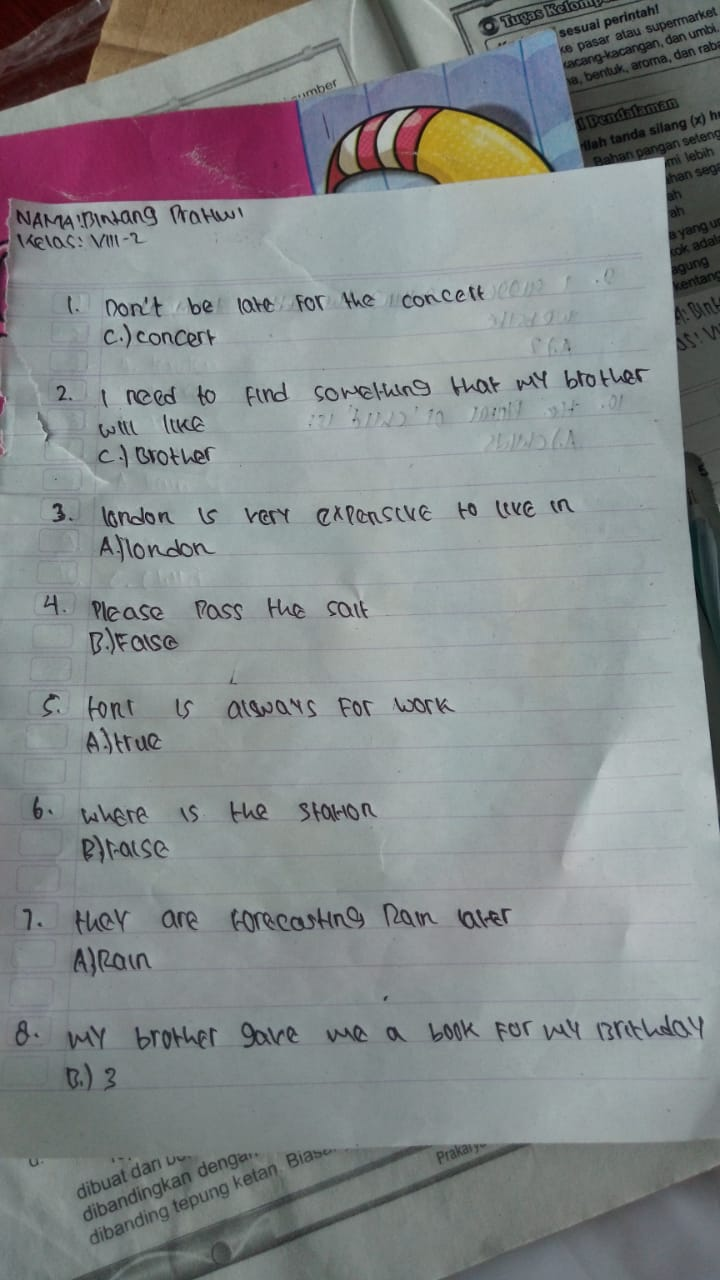 umber
Tugas Kelomp
sesuai perintah!
ke pasar atau supermarket
kacang-kacangan, dan umbi.
na, bentuk, aroma, dan raba
Pendalaman
ilah tanda silang (x) hu
Bahan pangan seteng
mi lebih
han sega
ah
ah
a yang u
tok adal
agung
kentang
NAMA: Bintang Pratiwi
Kelas: VIII-2
1. Don't be late for the concert
C.) concert
2. I need to find something that my brother
will like
C.) Brother
3. london is very expensive to live in
A.) london
4. Please Pass the salt
B.) False
5. font is always for work
A.) true
6. where is the station
B) False
7. they are forecasting Rain later
A) Rain
8. my brother gave me a book for my Brithday
B.) 3
dibuat dari
dibandingkan dengan
dibanding tepung ketan. Bias
Prakarya